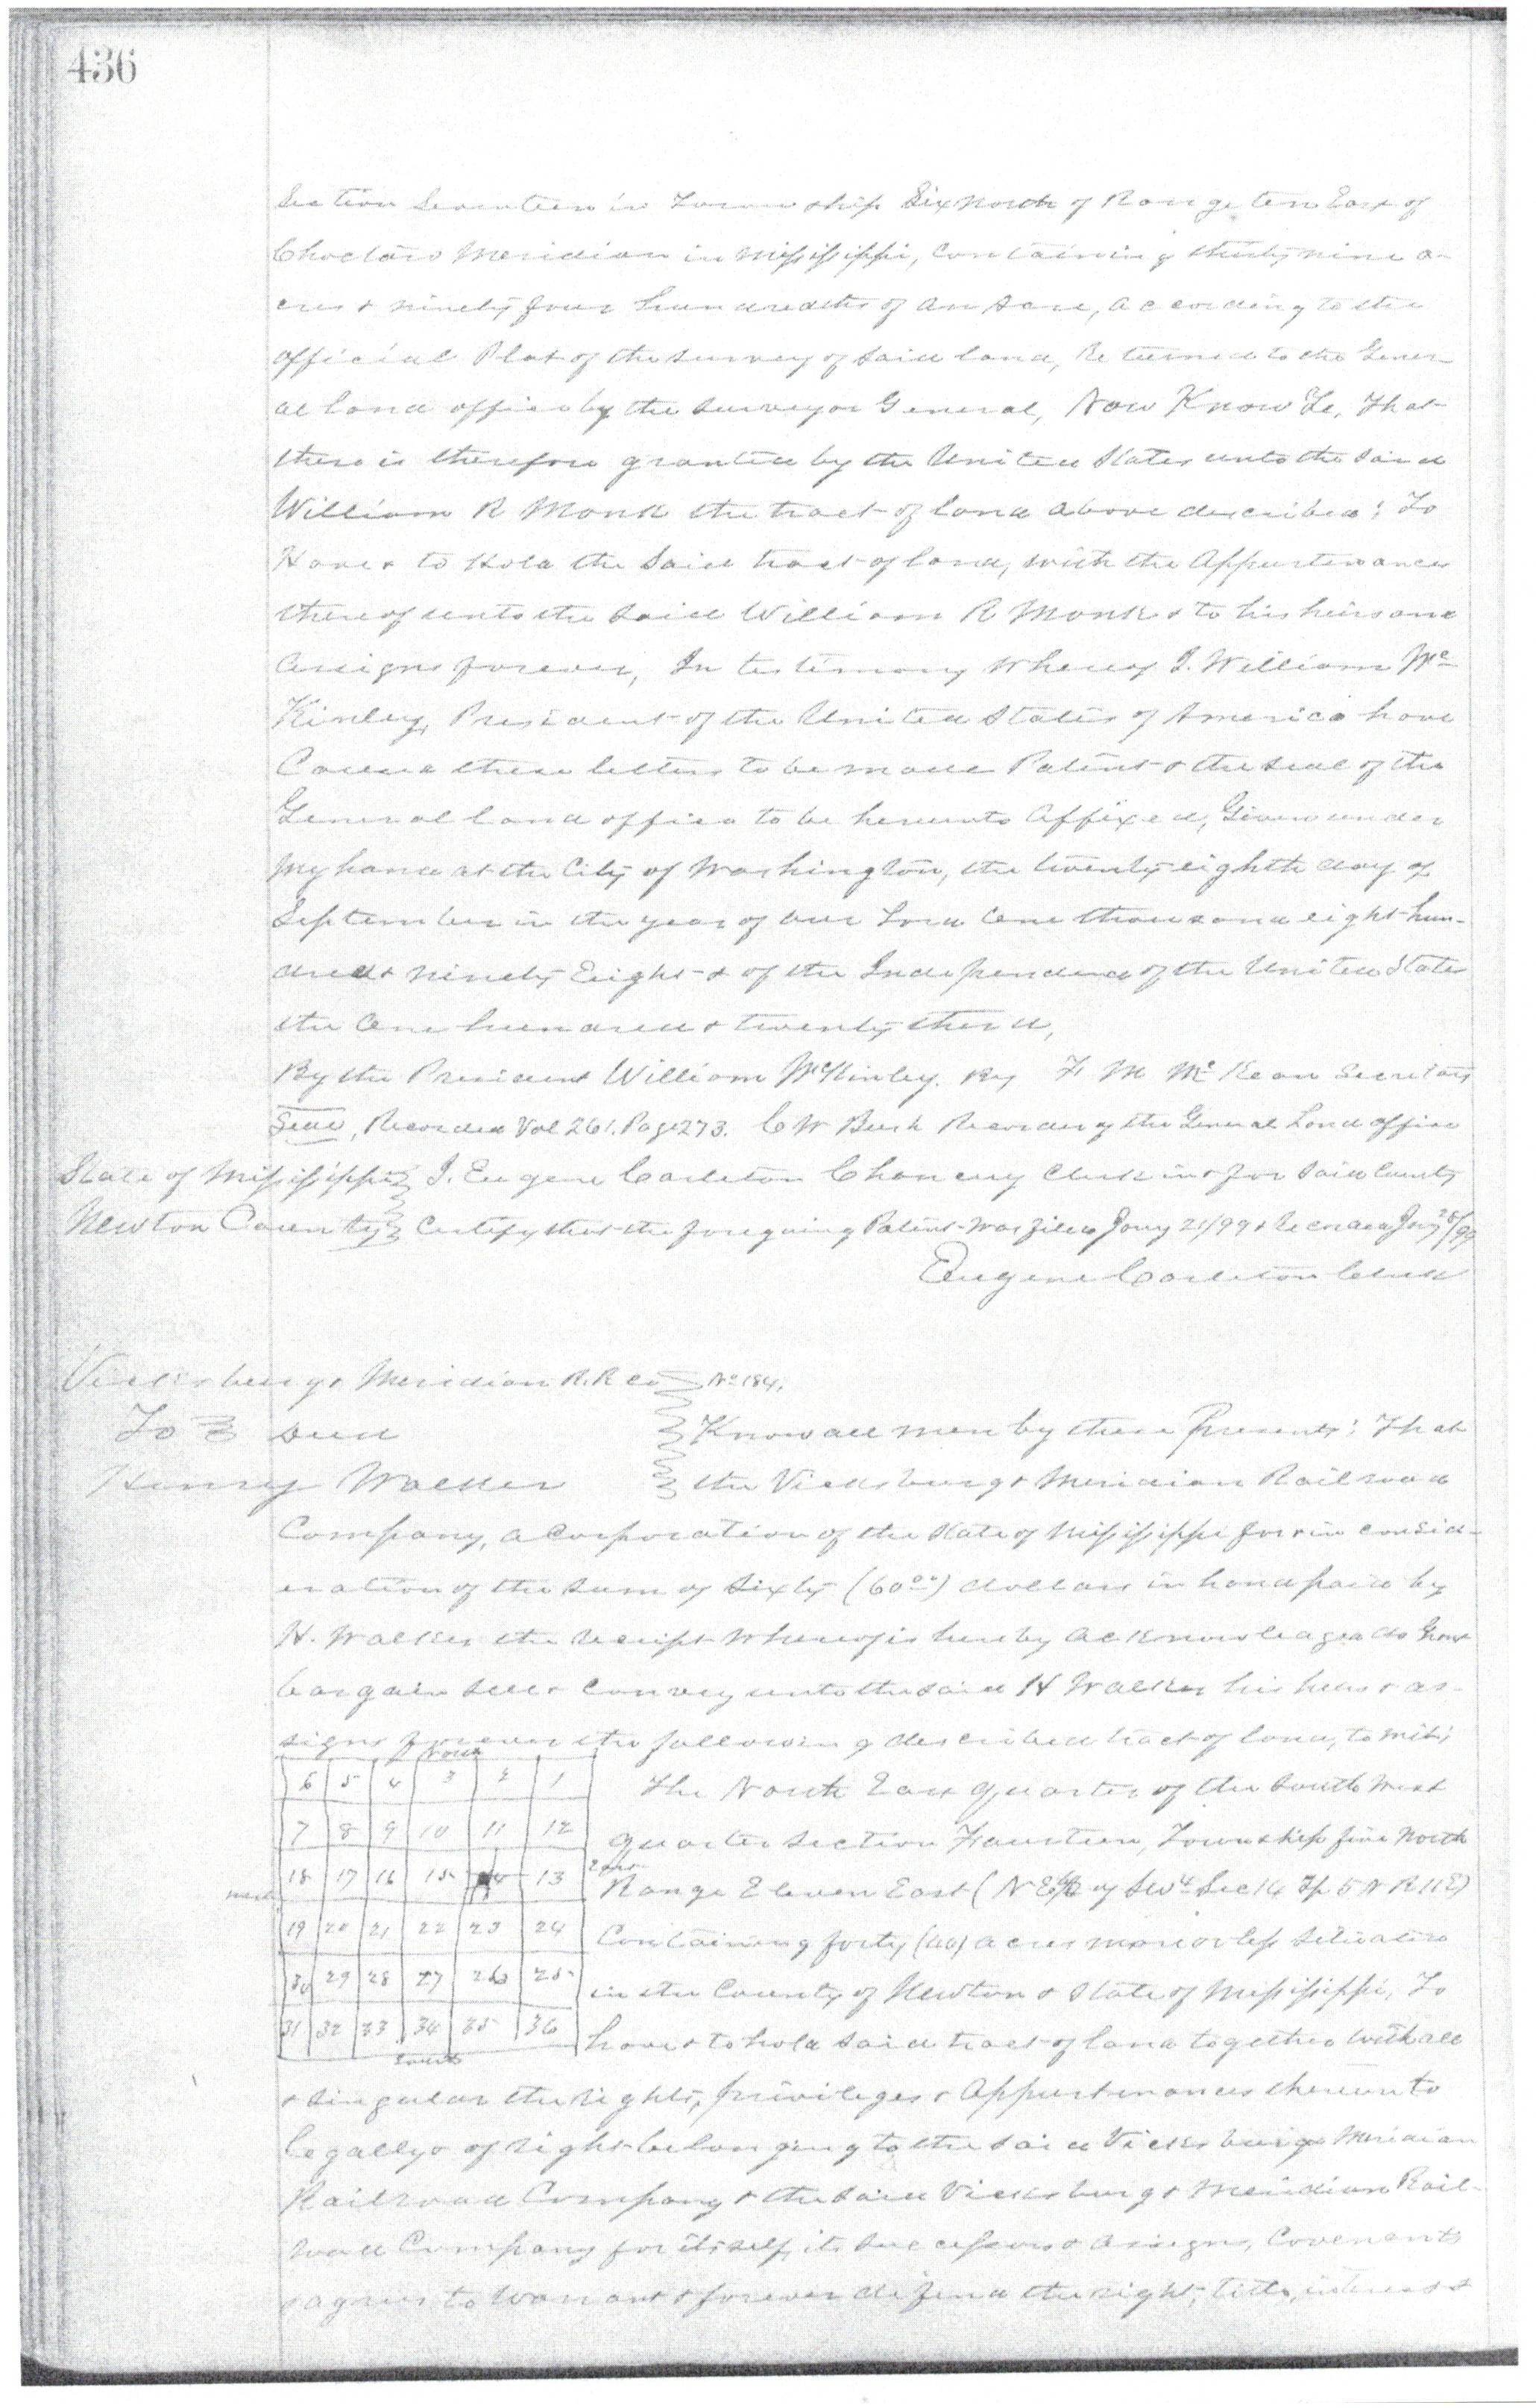 436
Section Seventeen in Township Six North of Range ten East of
Choctaw Meridian in Mississippi, Containing thirty nine a-
cres & ninety four hundredths of an Acre, according to the
official Plat of the survey of Said land, Returned to the Gener-
al land office by the surveyor General, Now Know Ye, That
there is therefore granted by the United States unto the Said
William R Monk the tract of land above described; To
Have & to Hold the Said tract of land, with the Appurtenances
thereof unto the Said William R Monk & to his heirs and
Assigns forever, In testimony Whereof I. William Mc
Kinley, President of the United States of America have
Caused these letters to be made Patent & the seal of the
General land office to be hereunto Affixed, Given under
My hand at the City of Washington, the twenty eighth day of
September in the year of our Lord One thousand eight hun-
dred & ninety Eight & of the Independence of the United States
the One hundred & twenty third,
By the President William McKinley. By F M McKean Secretary
Seal, Recorded Vol 261. Page 273. C W Bush Recorder of the General Land office
State of Mississippi I. Eugene Carleton Chancery Clerk in & for Said County
Newton County Certify that the foregoing Patent Was filed Jany 21/99 & Recorded Jany 28/99
Eugene Carleton Clerk
Vicksburg & Meridian R. R Co No 184,
To Deed Know all men by these Presents; That
Henry Walker the Vicksburg & Meridian Railroad
Company, a Corporation of the State of Mississippi for & in consid-
eration of the sum of Sixty (60 00) dollars in hand paid by
H. Walker the Receipt Whereof is hereby Acknowledged do Grant
bargain sell & Convey unto the Said H Walker his heirs & as-
signs forever the following described tract of land, to wit;
North
6 5 4 3 2 1 The North East quarter of the South West
7 8 9 10 11 12 quarter Section Fourteen, Township five North
18 17 16 15 14 13 Range Eleven East (N E 1/4 of SW 4 Sec 14 Tp 5 N R 11 E)
West East
19 20 21 22 23 24 Containing forty (40) acres more or less situated
30 29 28 27 26 25 in the County of Newton & State of Mississippi, To
31 32 33 34 35 36 have & to hold Said tract of land together with all
South
& singular the rights, privileges & Appurtenances thereunto
legally & of right belonging to the said Vicksburg & Meridian
Railroad Company & the Said Vicksburg & Meridian Rail-
road Company for itself, its successors & Assigns, Covenants
& agrees to Warrant & forever defend the right, title, interest &